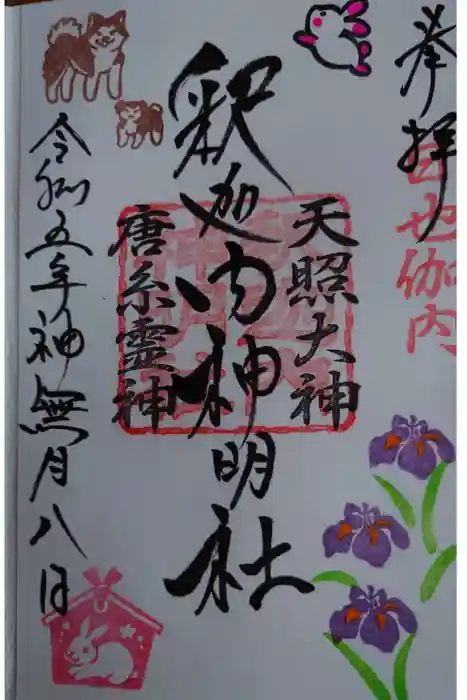 奉拝
也伽内
天照大神
釈迦内神明社
唐糸靈神
令和五年神無月八日